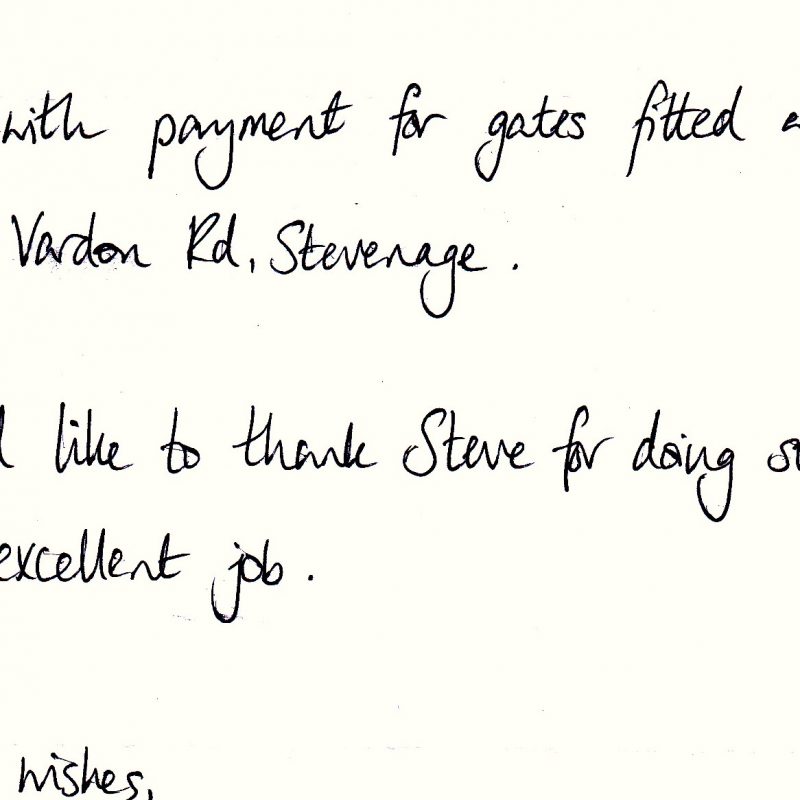 with payment for gates fitted a
Vardon Rd, Stevenage.
like to thank Steve for doing su
excellent job.
wishes,